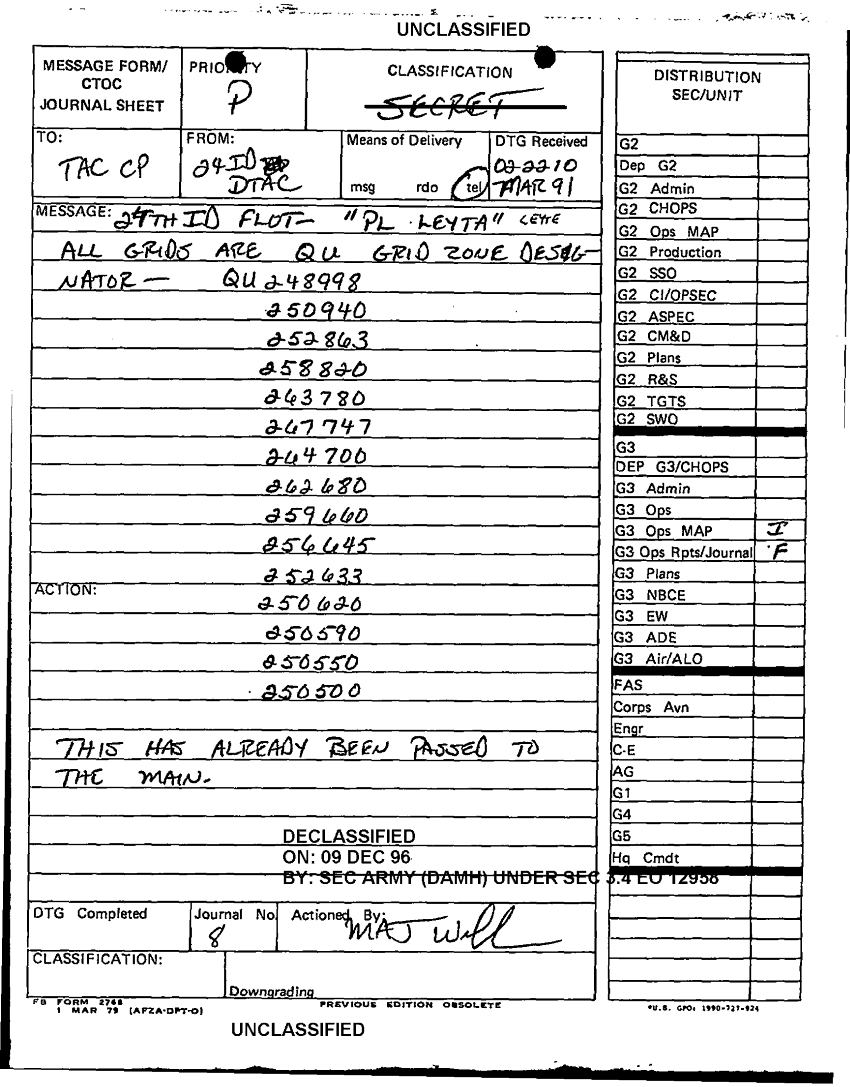 UNCLASSIFIED
MESSAGE FORM/
CTOC
JOURNAL SHEET
PRIORITY
P
CLASSIFICATION
SECRET
DISTRIBUTION
SEC/UNIT
TO:
TAC CP
FROM:
24 ID
DTAC
Means of Delivery
msg rdo tel
DTG Received
022210
MAR 91
MESSAGE: 24TH ID FLOT- "PL LEYTA" LEYTE
ALL GRIDS ARE QU GRID ZONE DESIG-
NATOR — QU 248998
250940
252863
258820
263780
267747
264700
262680
259660
256645
252633
ACTION:
250620
250590
250550
250500
THIS HAS ALREADY BEEN PASSED TO
THE MAIN.
DECLASSIFIED
ON: 09 DEC 96
BY: SEC ARMY (DAMH) UNDER SEC 3.4 EO 12958
DTG Completed
Journal No.
8
Actioned By:
MAJ Will
CLASSIFICATION:
Downgrading
G2
Dep G2
G2 Admin
G2 CHOPS
G2 Ops MAP
G2 Production
G2 SSO
G2 CI/OPSEC
G2 ASPEC
G2 CM&D
G2 Plans
G2 R&S
G2 TGTS
G2 SWO
G3
DEP G3/CHOPS
G3 Admin
G3 Ops
G3 Ops MAP I
G3 Ops Rpts/Journal F
G3 Plans
G3 NBCE
G3 EW
G3 ADE
G3 Air/ALO
FAS
Corps Avn
Engr
C-E
AG
G1
G4
G5
Hq Cmdt
FB FORM 2768
1 MAR 79 (AFZA-DPT-O)
PREVIOUS EDITION OBSOLETE
*U.S. GPO: 1990-727-924
UNCLASSIFIED